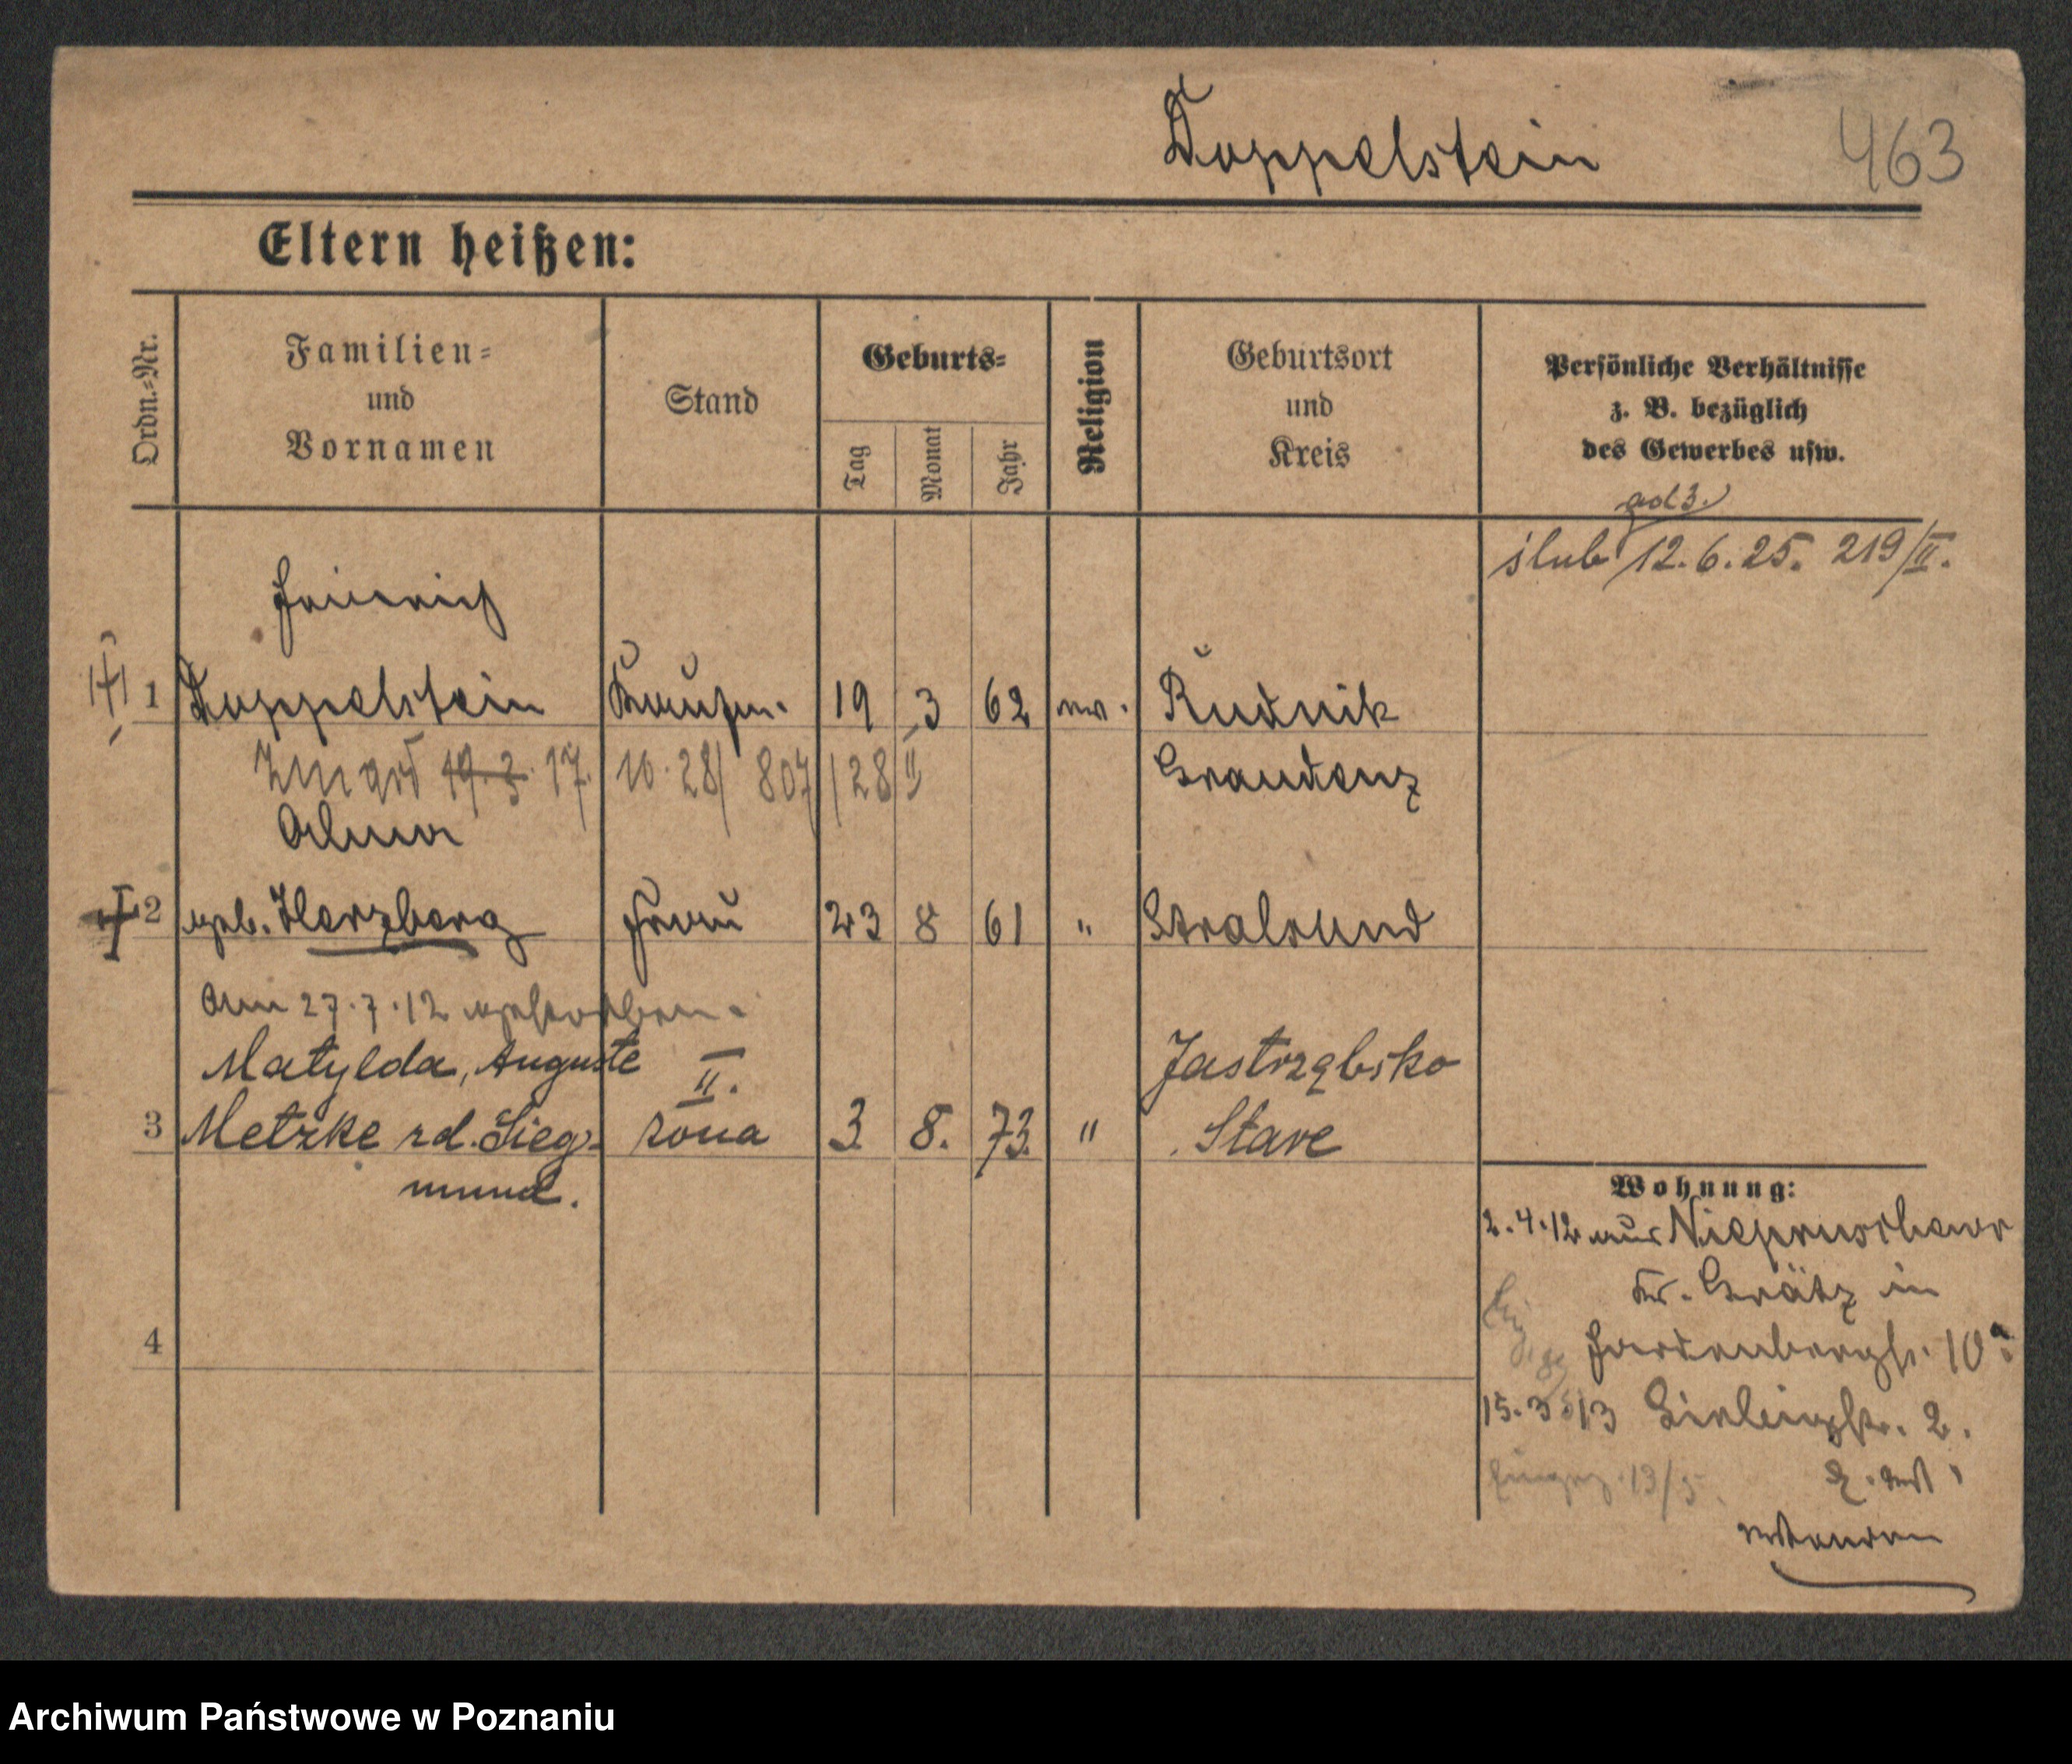 Doppelstein 463
Eltern heißen:
Ordn.-Nr.
Familien-
und
Vornamen
Stand
Geburts-
Tag
Monat
Jahr
Religion
Geburtsort
und
Kreis
Persönliche Verhältnisse
z. B. bezüglich
des Gewerbes usw.
ad 3.
ślub 12.6.25. 219/II.
Heinrich
1 Doppelstein Kaufm. 19 3 62 ev. Rudnik
Zmarł 19.3. 17. 10. 28/ 807/28/II Graudenz
Alma
2 geb. Herzberg Frau 23 8 61 " Stralsund
Am 27.7.12 gestorben.
Matylda, Auguste II. Jastrzębsko
3 Metzke rd. Sieg- żona 3. 8. 73. " Stare
mund.
Wohnung:
2.4.12 aus Niepruschewo
Kr. Grätz in
10a
4
15.3.13 2.
13/3.